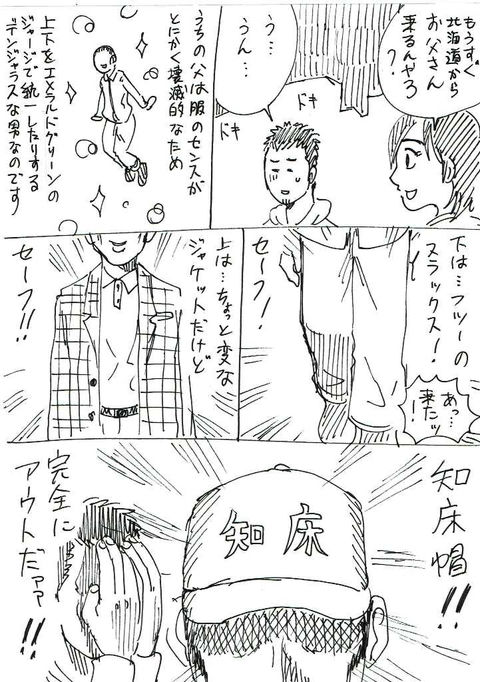 もうすぐ
北海道から
お父さん
来るんやろ
?
う…
うん…
ドキ
ドキ
うちの父は服のセンスが
とにかく壊滅的なため
上下をエメラルドグリーンの
ジャージで統一したりする
デンジャラスな男なのです
あっ…
来たッ
!
下は…フツーの
スラックス!
セーフ!
上は…ちょっと変な
ジャケットだけど
セーフ!!
知床帽!!
知床
完全に
アウトだァァ!!